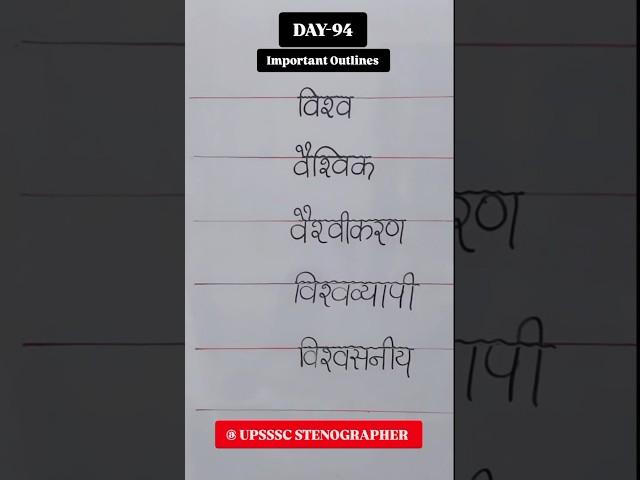 DAY-94
Important Outlines
विश्व
वैश्विक
वैश्वीकरण
विश्वव्यापी
विश्वसनीय
@ UPSSSC STENOGRAPHER
रण
ापी